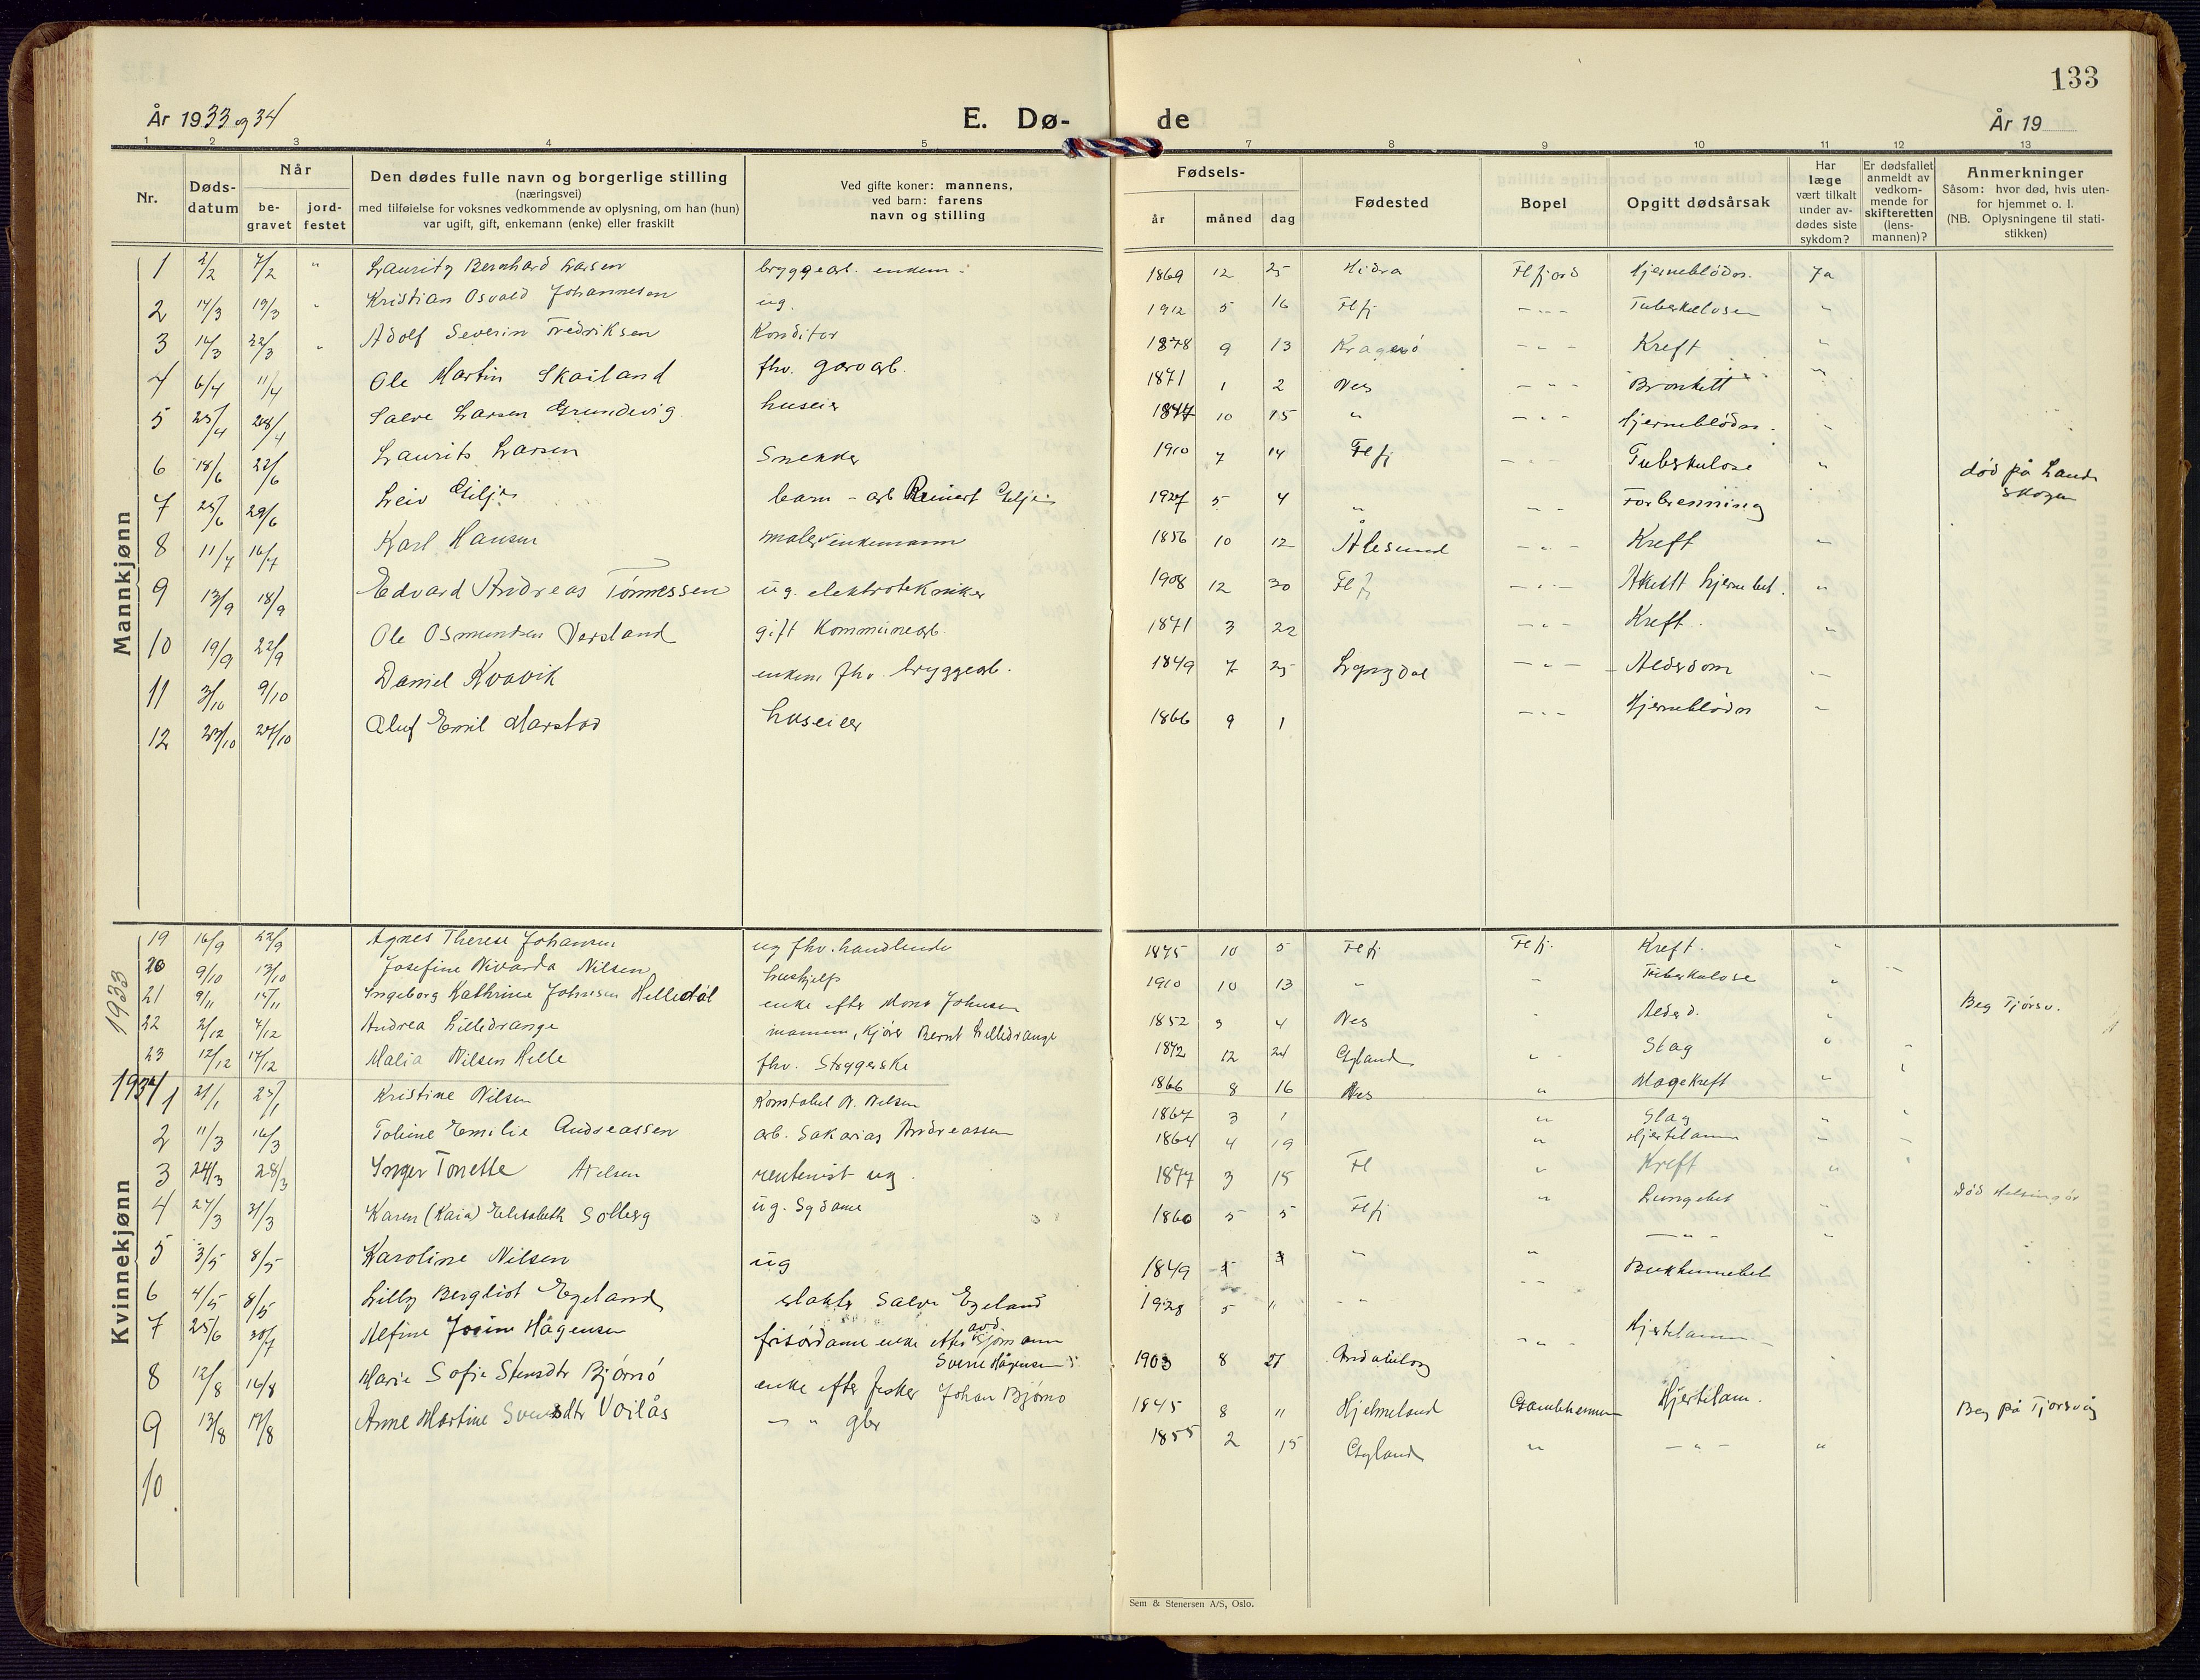 133
År 1933 og 34
E. Dø-
de
År 19
1 2 3 4 5 7 8 9 10 11 12 13
Nr.
Døds-
datum
Når
be-
gravet
jord-
festet
Den dødes fulle navn og borgerlige stilling
(næringsvei)
med tilføielse for voksnes vedkommende av oplysning, om han (hun)
var ugift, gift, enkemann (enke) eller fraskilt
Ved gifte koner: mannens,
ved barn: farens
navn og stilling
Fødsels-
år
måned
dag
Fødested
Bopel
Opgitt dødsårsak
Har
læge
vært tilkalt
under av-
dødes siste
sykdom?
Er dødsfallet
anmeldt av
vedkom-
mende for
skifteretten
(lens-
mannen)?
Anmerkninger
Såsom: hvor død, hvis uten-
for hjemmet o. l.
(NB. Oplysningene til stati-
stikken)
Mannkjønn
1 2/2 7/2 " Lauritz Bernhard Larsen bryggearb. enkem. 1869 12 25 Hidra Flfjord Hjerneblødn. Ja
2 14/3 19/3 " Kristian Osvald Johannesen ug. 1912 5 16 Flfj - " - Tuberkulosen "
3 14/3 22/3 " Adolf Severin Fredriksen Konditor 1878 9 13 Kragerø - " - Kreft "
4 6/4 11/4 Ole Martin Skailand fhv. garvarb. 1871 1 2 Nes - " - Bronkitt "
5 25/4 28/4 Salve Larsen Grundevig huseier 1847 10 15 " - " - Hjerneblødn. "
6 18/6 22/6 Laurits Larsen Snekker 1910 7 14 Flfj - " - Tuberkulose " død på Lands
skogen
7 25/6 29/6 Leiv Gilje barn - arb Reinert Gilje 1927 5 4 " - " - Forbrenning
8 11/7 16/7 Karl Hansen maler enkemann 1856 10 12 Ålesund - " - Kreft "
9 13/9 18/9 Edvard Andreas Tønnessen ug. elektrotekniker 1908 12 30 Flfj - " - Akutt hjernebet. "
10 19/9 22/9 Ole Osmundsen Versland gift Kommunearb. 1871 3 22 - " - Kreft. "
11 3/10 9/10 Daniel Kvavik enkem fhv. bryggearb. 1849 7 25 Lyngdal - " - Alderdom "
12 23/10 27/10 Oluf Emil Marstad huseier 1866 9 1 - " - Hjerneblødn "
1933
19 16/9 22/9 Agnes Therese Johansen ug fhv. handlende 1875 10 5 Flfj Flfj. Kreft. "
20 9/10 13/10 Josefine Nivarda Nilsen hushjelp 1910 10 13 " " Tuberkulose "
21 9/11 15/11 Ingeborg Kathrine Johnsen Helledal enke efter Mons Johnsen 1852 3 4 Nes " Alderd. " Beg Tjørsv.
22 2/12 4/12 Andrea Lilledrange mannen, Kjører Bernt Lilledrange 1872 12 24 Gyland " Slag "
23 12/12 17/12 Malia Nilsen Helle fhv. Strygerske 1866 8 16 Nes " Magekreft "
1934
Kvinnekjønn
1 21/1 25/1 Kristine Nilsen Konstabel N. Nilsen 1867 3 1 " Slag "
2 11/3 16/3 Toline Emilie Andreassen arb. Sakarias Andreassen 1864 4 19 " Hjertelamm "
3 24/3 28/3 Inger Tonette Axelsen rentenist ug. 1877 3 15 Fl " Kreft "
4 27/3 31/3 Karen (Kaia) Elisabeth Solberg ug. Sydame 1860 5 5 Flfj " Lungebet " Død Helsingør
5 3/5 8/5 Karoline Nilsen ug 1849 " " - " - "
6 4/5 8/5 Lilly Bergliot Egeland slakter Salve Egeland 1928 5 11 " - - Bukhinnebet
7 25/6 30/7 Alfine Josine Hågensen frisørdame enke efter avd. Sjømann
Sverre Hågensen 1903 8 27 - " - Hjertelamm "
8 12/8 16/8 Marie Sofie Stensdtr Bjørnø enke efter fisker Johan Bjørnø 1845 8 11 Hjelmeland Gamlehjemmen Hjertelam. Beg på Tjorsvåg
9 13/8 17/8 Anne Martine Svensdtr Voilås - " - gbr 1855 2 15 Gyland " - " - "
10
Sem & Stenersen A/S, Oslo.